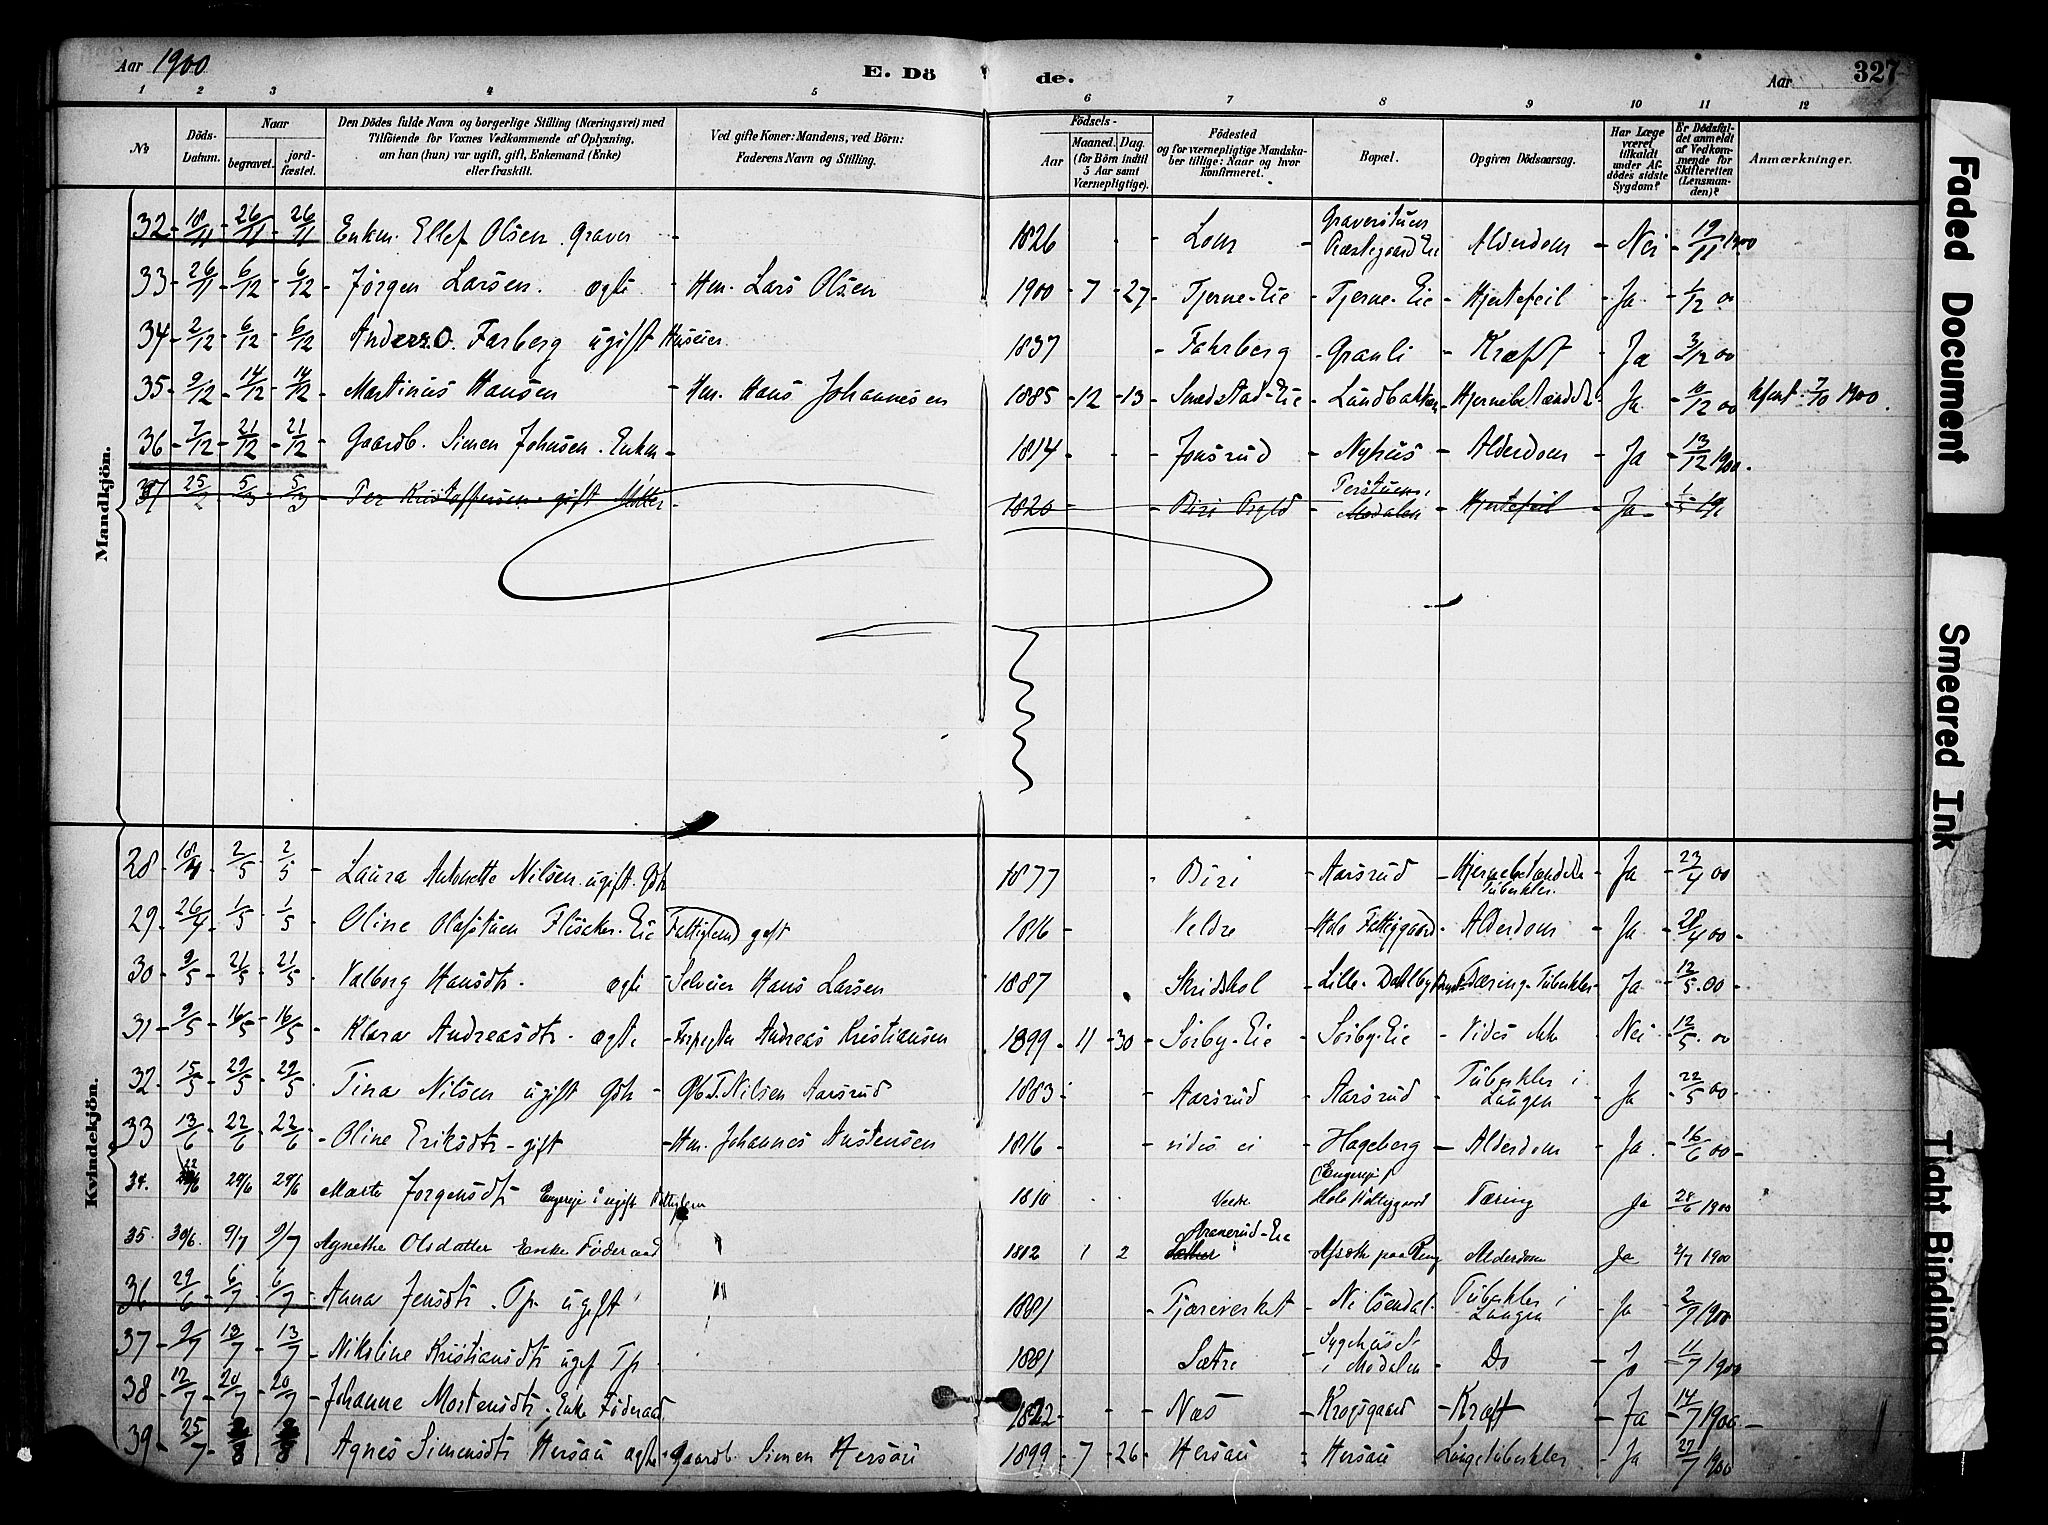 Aar 1900
E. Dö de.
Aar
327
1 2 3 4 5 6 7 8 9 10 11 12
No
Döds-Datum.
Naar
begravet.
jord-fæstet.
Den Dödes fulde Navn og borgerlige Stilling (Næringsvei) med
Tilföiende for Voxnes Vedkommende af Oplysning,
om han (hun) var ugift, gift, Enkemand (Enke)
eller fraskilt.
Ved gifte Koner: Mandens, ved Börn:
Faderens Navn og Stilling.
Födsels-
Aar
Maaned. Dag.
(for Börn indtil
5 Aar samt
Værnepligtige).
Födested
og for værnepligtige Mandska-
ber tillige: Naar og hvor
konfirmeret.
Bopæl.
Opgiven Dödsaarsag.
Har Læge
været
tilkaldt
under Af-
dödes sidste
Sygdom?
Er Dödsfal-
det anmeldt
af Vedkom-
mende for
Skifteretten
(Lensman-
den)?
Anmærkninger.
Mandkjön.
32 - 18/11 - 26/11 - 26/11 Enkm. Ellef Olsen Graver - 1826 - - - Lom - Graverstuen Præstegaard Eie - Alderdom - Nei - 19/11 1900
33 - 26/11 - 6/12 - 6/12 - Jørgen Larsen. ægte - Hm. Lars Olsen 1900 - 7 - 27 - Tjerne-Eie - Tjerne-Eie - Hjertefeil - Ja - 1/12 00
34 - 2/12 - 6/12 - 6/12 - Anders O. Farberg ugift Huseier 1837 - Fahrberg - Granli - Kræft - Ja - 3/12 00
35 - 9/12 - 14/12 - 14/12 - Martinus Hansen - Hm. Hans Johannesen 1885 - 12 - 13 - Smedstad-Eie - Lundbakken - Hjernebetændelse - Ja - 10/12 00 kfmt. 7/10 1900.
36 - 7/12 - 21/12 - 21/12 - Gaardb. Simen Johnsen. Enkm - 1814 - - - Jonsrud - Nyhus - Alderdom - Ja - 13/12 1900.
37 25/2 - 5/3 - 5/3 - Per Kristoffersen gift - 1820 - Biri - Perstuen, Mødalen - Hjertefeil - Ja -
Kvindekjön.
28 - 18/4 - 2/5 - 2/5 - Laura Antonette Nilsen ugift. Gdtr 1877 - Biri - Aarsrud - Hjernebetændelse Tuberkler. - Ja - 23/4 00
29 - 26/4 - 1/5 - 1/5 - Oline Olafstuen Flisaker-Eie Fattiglem gift 1816 - Veldre - Holo Fattiggaard - Alderdom - Ja - 28/4 00 -
30 - 9/5 - 21/5 - 21/5 - Valborg Hansdtr. ægte - Selveier Hans Larsen 1887 - Skridshol - Lille-Dahlby - Tæring - Tuberkler - Ja - 12/5 00 -
31 - 9/5 - 16/5 - 16/5 - Klara Andreasdtr. ægte - Forpagter Andreas Kristiansen 1899 - 11 - 30 - Sørby-Eie - Sørby-Eie - Vides ikke - Nei - 12/5 00
32 - 15/5 - 22/5 - 22/5 - Tina Nilsen ugift Gdtr - Gb. T. Nilsen Aarsrud 1883 - Aarsrud - Aarsrud - Tuberkler i Lungen - Ja - 22/5 00 -
33 - 13/6 - 22/6 - 22/6 - Oline Eriksdtr - gift - Hm. Johannes Austensen 1816 - vides ei - Hageberg - Alderdom - Ja - 16/6 00 -
34. 22/6 29/6 29/6 Marte Jorgensdtr Engereje ugift Fattiglem 1810 Veldre Engereje Holo Fattiggaard Tæring Ja 28/6 1900
35. 30/6 9/7 9/7 Agnethe Olsdatter Enke Føderaad " 1812 1 2 Aspesæth paa Ring Alderdom Ja 2/7 1900
36 29/6 - 6/7 - 6/7 - Anna Jensdtr. Tp. ugift " 1881 - Tjæreverket - Nilsendal - Tuberkler i Lungen - Ja - 2/7 1900
37 - 9/7 - 13/7 - 13/7 - Nikoline Kristiansdtr ugift Tp - 1881 Sætre - Sygehuset i Mødalen - Do - Ja - 11/7 1900
38 - 12/7 - 20/7 - 20/7 - Johanne Mortensdtr, Enke Føderaad. 1822 - - - Næs - Krogsgaard - Kræft - Ja - 14/7 1900 -
39 - 25/7 - 2/8 - 2/8 - Agnes Simensdtr Hersau ægte - Gaardb. Simen Hersau 1899 - 7 - 26 - Hersau - Hersau Lungetuberkler - Ja - 27/7 1900
Faded Document
Smeared Ink
Tight Binding